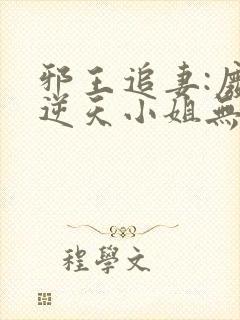 邪王追妻:
逆天小姐無
程學文